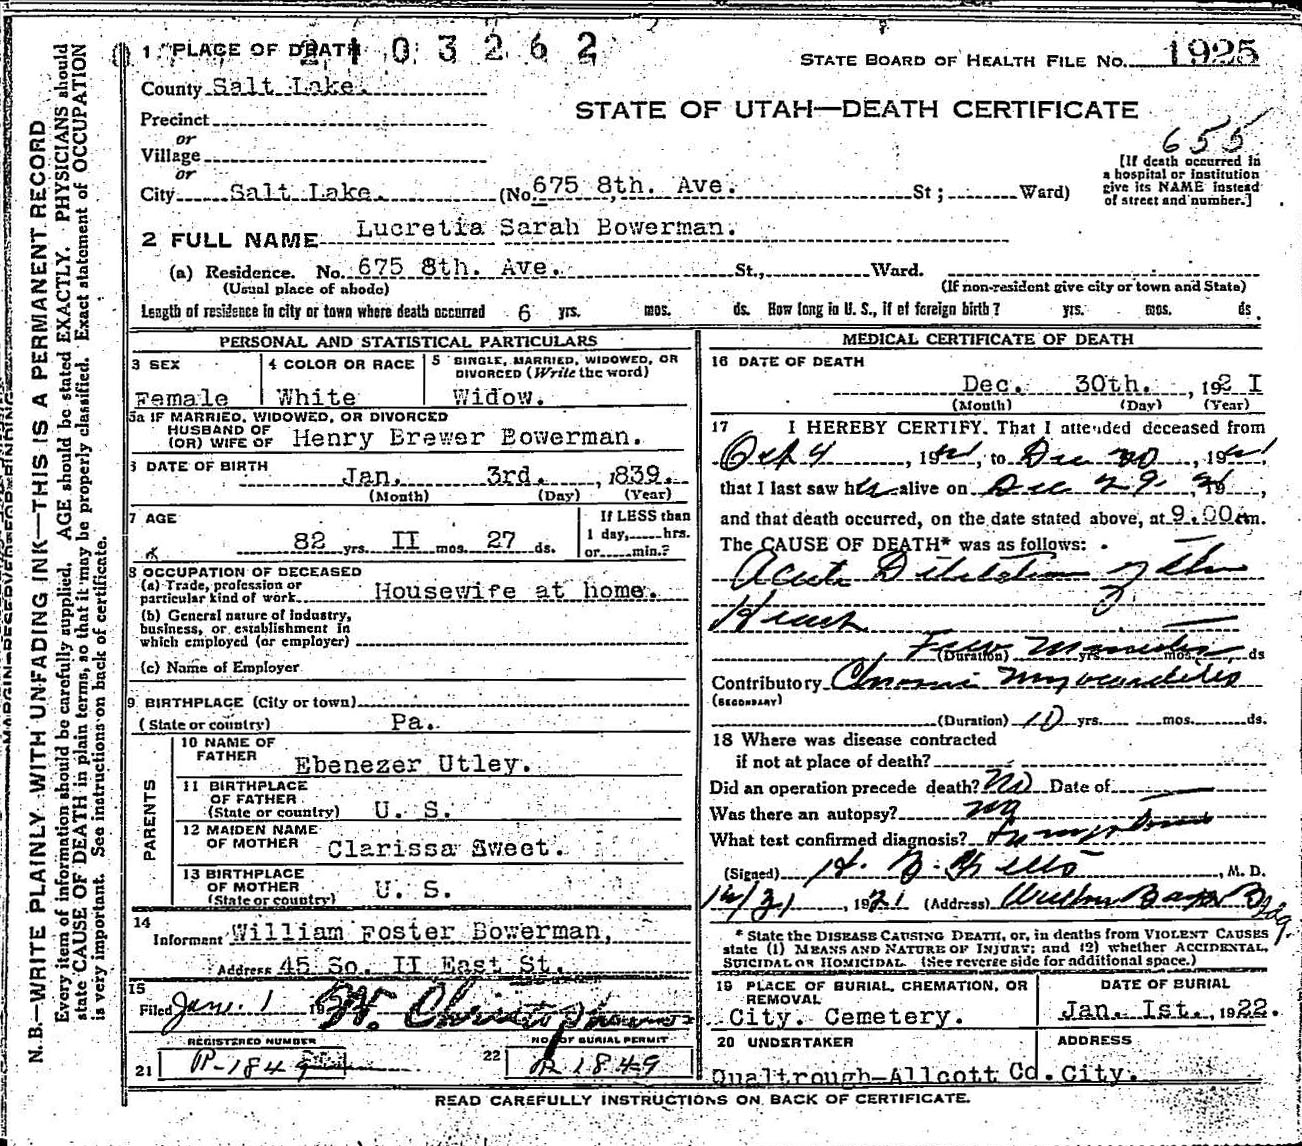 N.B.—WRITE PLAINLY, WITH UNFADING INK—THIS IS A PERMANENT RECORD
Every item of information should be carefully supplied. AGE should be stated EXACTLY. PHYSICIANS should
state CAUSE OF DEATH in plain terms, so that it may be properly classified. Exact statement of OCCUPATION
is very important. See instructions on back of certificate.
1 PLACE OF DEATH 2103262
STATE BOARD OF HEALTH FILE NO. 1925
County Salt Lake.
STATE OF UTAH—DEATH CERTIFICATE
Precinct
or
Village
or
655
[If death occurred in
a hospital or institution
give its NAME instead
of street and number.]
City Salt Lake. (No 675 8th. Ave. St; Ward)
2 FULL NAME Lucretia Sarah Bowerman.
(a) Residence. No. 675 8th. Ave. St., Ward.
(Usual place of abode) (If non-resident give city or town and State)
Length of residence in city or town where death occurred 6 yrs. mos. ds. How long in U. S., if of foreign birth? yrs. mos. ds.
PERSONAL AND STATISTICAL PARTICULARS
3 SEX
Female
4 COLOR OR RACE
White
5 SINGLE, MARRIED, WIDOWED, OR
DIVORCED (Write the word)
Widow.
5a IF MARRIED, WIDOWED, OR DIVORCED
HUSBAND OF
(OR) WIFE OF Henry Brewer Bowerman.
6 DATE OF BIRTH
Jan. 3rd. , 1839.
(Month) (Day) (Year)
7 AGE
82 yrs. II mos. 27 ds.
If LESS than
1 day, hrs.
or min.?
8 OCCUPATION OF DECEASED
(a) Trade, profession or
particular kind of work Housewife at home.
(b) General nature of industry,
business, or establishment in
which employed (or employer)
(c) Name of Employer
9 BIRTHPLACE (City or town)
(State or country) Pa.
PARENTS
10 NAME OF
FATHER Ebenezer Utley.
11 BIRTHPLACE
OF FATHER
(State or country) U. S.
12 MAIDEN NAME
OF MOTHER Clarissa Sweet.
13 BIRTHPLACE
OF MOTHER
(State or country) U. S.
14
Informant William Foster Bowerman,
Address 45 So. II East St.
15
Filed Jany. 1 19
REGISTERED NUMBER
21 R-1849
NO. OF BURIAL PERMIT
22 R 1849
MEDICAL CERTIFICATE OF DEATH
16 DATE OF DEATH
Dec. 30th. , 192I
(Month) (Day) (Year)
17 I HEREBY CERTIFY. That I attended deceased from
Oct 4, 1921, to Dec 30, 1921,
that I last saw her alive on Dec 29, 21,
and that death occurred, on the date stated above, at 9.00 am.
The CAUSE OF DEATH* was as follows:
Acute Dilitation of the
Heart
Few Minutes
(Duration) yrs. mos. ds
Contributory Chronic Myocarditis
(SECONDARY)
(Duration) 10 yrs. mos. ds.
18 Where was disease contracted
if not at place of death?
Did an operation precede death? No Date of
Was there an autopsy? no
What test confirmed diagnosis? Symptoms
(Signed) , M. D.
12/31, 1921 (Address) Bldg.
* State the DISEASE CAUSING DEATH, or, in deaths from VIOLENT CAUSES
state (1) MEANS AND NATURE OF INJURY; and (2) whether ACCIDENTAL,
SUICIDAL OR HOMICIDAL. (See reverse side for additional space.)
19 PLACE OF BURIAL, CREMATION, OR
REMOVAL
City. Cemetery.
DATE OF BURIAL
Jan. Ist., 1922.
20 UNDERTAKER
Qualtrough-Allcott Co.
ADDRESS
City.
READ CAREFULLY INSTRUCTIONS ON BACK OF CERTIFICATE.